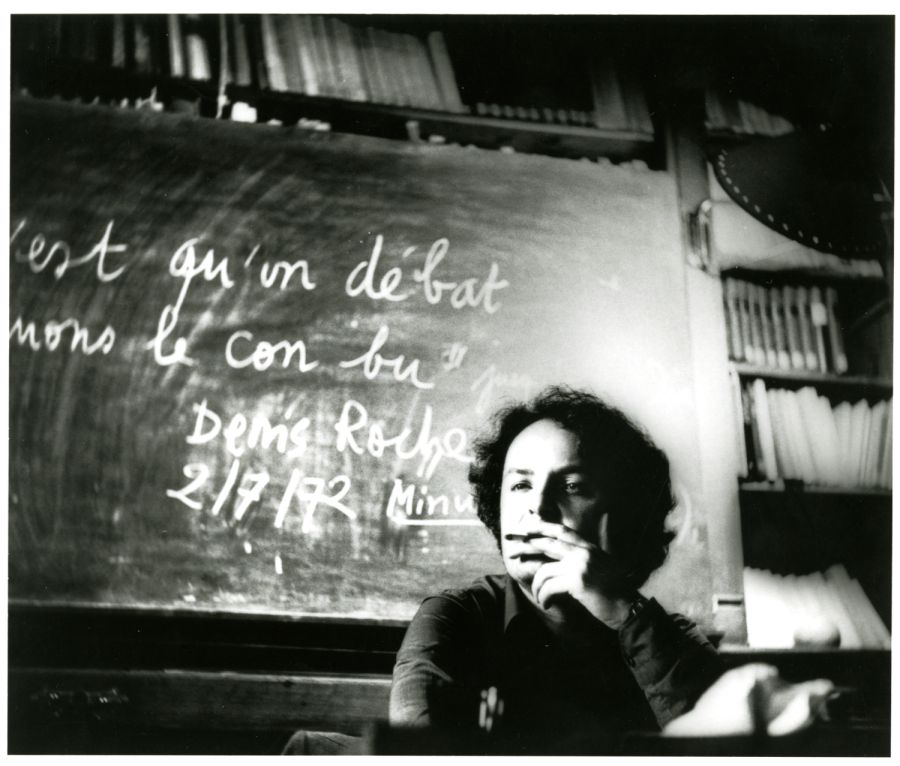 'est qu'on débat
nons le con bu"
Denis Roche
2/7/72 Minu